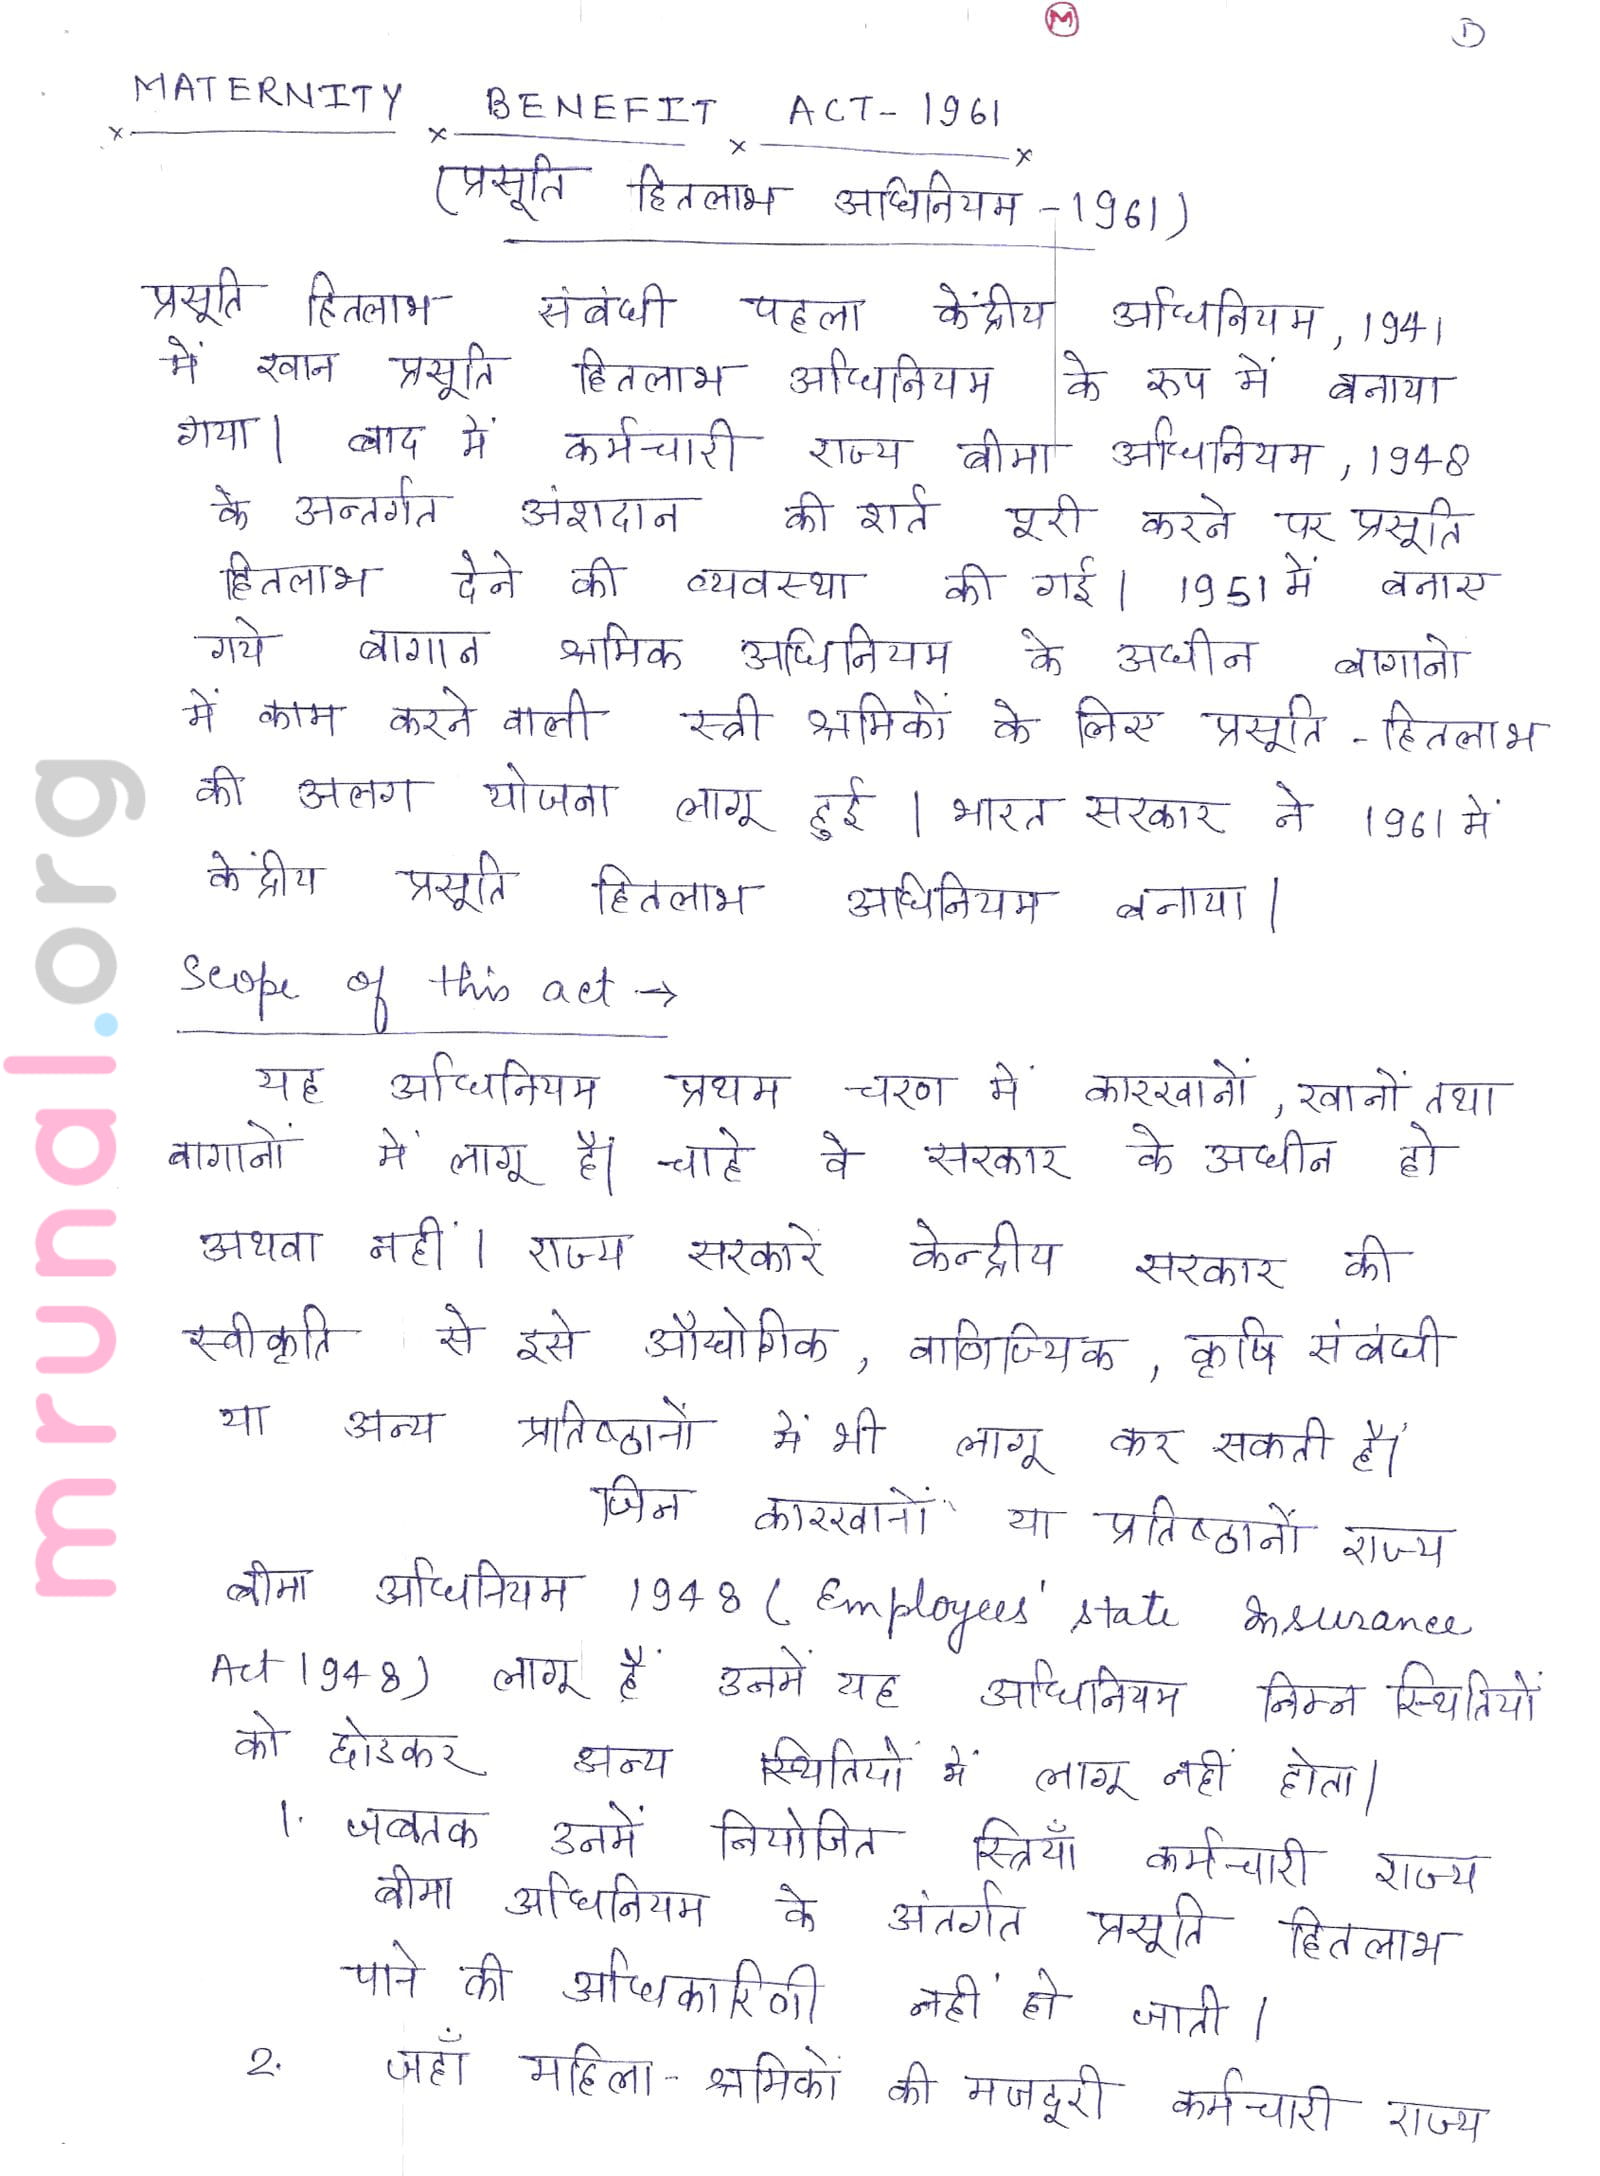 M
1
MATERNITY BENEFIT ACT-1961
(प्रसूति हितलाभ अधिनियम-1961)
प्रसूति हितलाभ संबंधी पहला केंद्रीय अधिनियम, 1941
में खान प्रसूति हितलाभ अधिनियम के रुप में बनाया
गया। बाद में कर्मचारी राज्य बीमा अधिनियम, 1948
के अन्तर्गत अंशदान की शर्त पूरी करने पर प्रसूति
हितलाभ देने की व्यवस्था की गई। 1951 में बनाए
गये बागान श्रमिक अधिनियम के अधीन बागानो
में काम करने वाली स्त्री श्रमिकों के लिए प्रसूति-हितलाभ
की अलग योजना लागू हुई। भारत सरकार ने 1961 में
केंद्रीय प्रसूति हितलाभ अधिनियम बनाया।
Scope of this act →
यह अधिनियम प्रथम चरण में कारखानों, खानों तथा
बागानों में लागू है। चाहे वे सरकार के अधीन हो
अथवा नहीं। राज्य सरकारें केन्द्रीय सरकार की
स्वीकृति से इसे औद्योगिक, वाणिज्यिक, कृषि संबंधी
या अन्य प्रतिष्ठानों में भी लागू कर सकती हैं।
जिन कारखानों या प्रतिष्ठानों राज्य
बीमा अधिनियम 1948 (Employees' state Insurance
Act 1948) लागू हैं उनमें यह अधिनियम निम्न स्थितियों
को छोडकर अन्य स्थितियों में लागू नहीं होता।
1. जबतक उनमें नियोजित स्त्रियाँ कर्मचारी राज्य
बीमा अधिनियम के अंतर्गत प्रसूति हितलाभ
पाने की अधिकारिणी नहीं हो जाती।
2. जहाँ महिला-श्रमिकों की मजदूरी कर्मचारी राज्य
mrunal.org